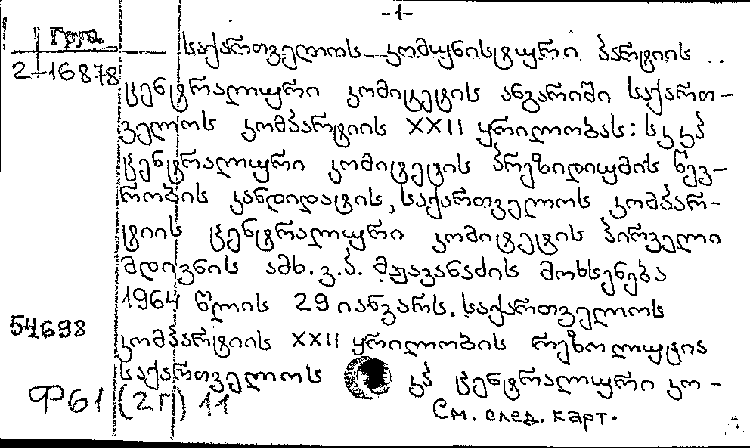 -1-
Груз.
2-16878
საქართველოს კომუნისტური პარტიის
ცენტრალური კომიტეტის ანგარიში საქართ-
ველოს კომპარტიის XXII ყრილობას: სკკპ
ცენტრალური კომიტეტის პრეზიდიუმის წევ-
რობის კანდიდატის, საქართველოს კომპარ-
ტიის ცენტრალური კომიტეტის პირველი
მდივნის ამხ. ვ.პ. მჟავანაძის მოხსენება
1964 წლის 29 იანვარს. საქართველოს
54698
კომპარტიის XXII ყრილობის რეზოლუცია
საქართველოს კპ ცენტრალური კო-
Ф61 (2Г) 11
См. след. карт.